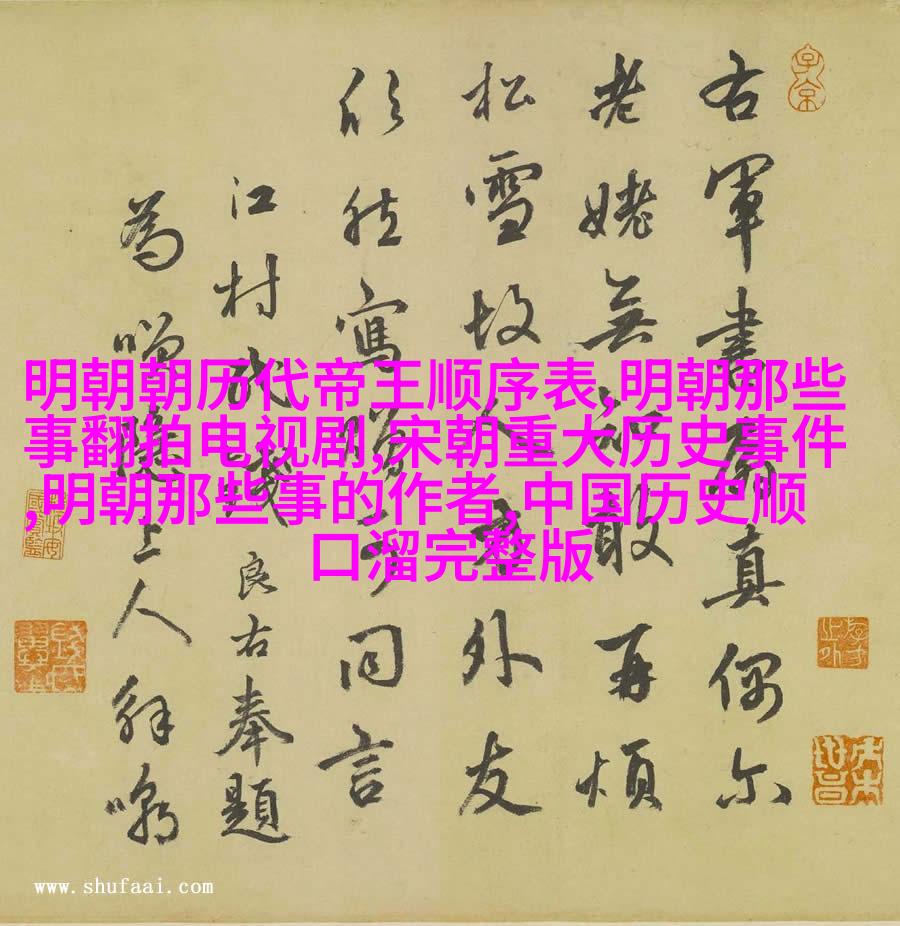 右軍書屬真偶尔
老姥無敢再煩
松雪故人外友
欣然寫同言
江村 良右奉題
為上人解嘲
明朝朝历代帝王顺序表,明朝那些
事翻拍电视剧,宋朝重大历史事件
,明朝那些事的作者,中国历史顺
口溜完整版
www.shufaai.com